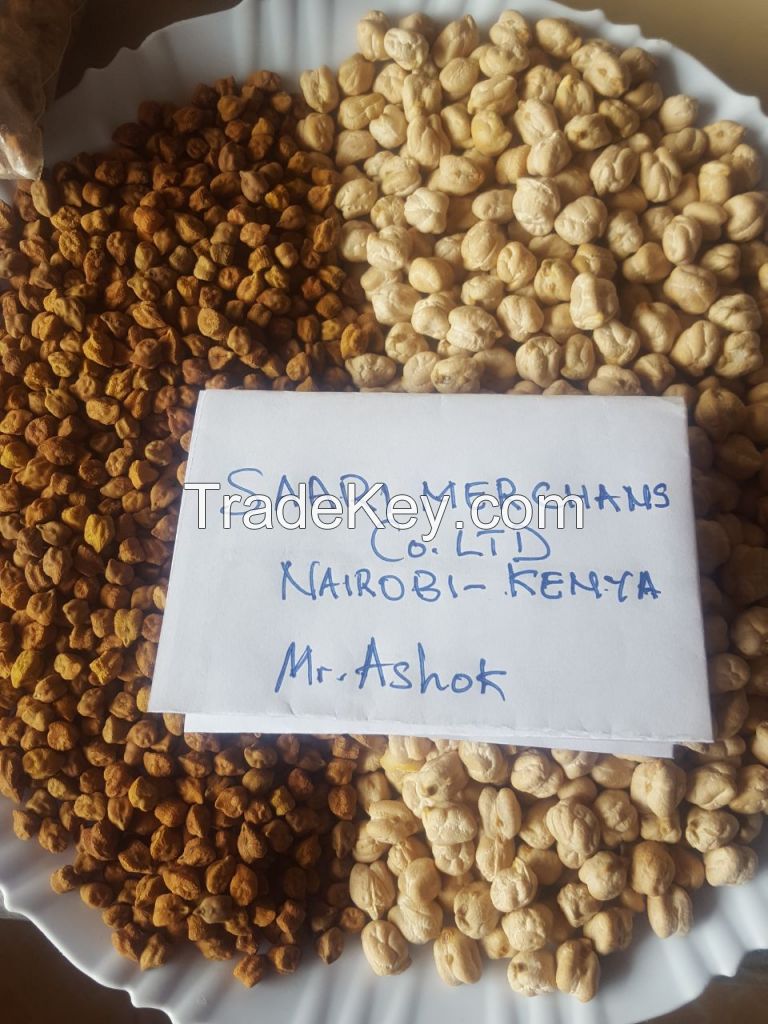 SAARJ MERCHANS
TradeKey.com
Co. LTD
NAIROBI - KENYA
Mr. Ashok